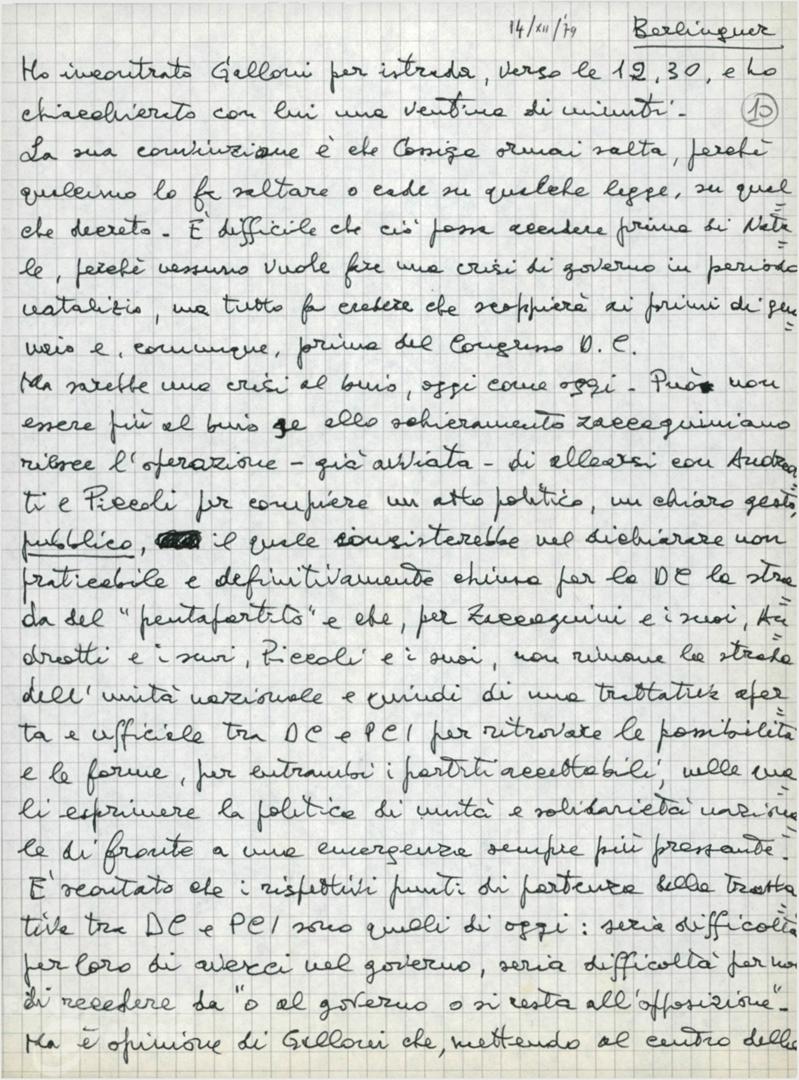 14/XII/79 Berlinguer
Ho incontrato Galloni per istrada, verso le 12,30, e ho
chiacchierato con lui una ventina di minuti.
10
La sua convinzione è che Cossiga ormai salta, perché
qualcuno lo fa saltare o cade su qualche legge, su qual
che decreto. È difficile che ciò possa accadere prima di Nata
le, perché nessuno vuole fare una crisi di governo in periodo
natalizio, ma tutto fa credere che scoppierà ai primi di gen
naio e, comunque, prima del Congresso D.C.
Ma sarebbe una crisi al buio, oggi come oggi. Può non
essere più al buio se allo schieramento zaccagniniano
riesce l'operazione - già avviata - di allearsi con Andreot
ti e Piccoli per compiere un atto politico, un chiaro gesto
pubblico, il quale consisterebbe nel dichiarare non
praticabile e definitivamente chiusa per la DC la stra
da del "pentapartito" e che, per Zaccagnini e i suoi, An
dreotti e i suoi, Piccoli e i suoi, non rimane la strada
dell'unità nazionale e quindi di una trattativa aper
ta e ufficiale tra DC e PCI per ritrovare le possibilità
e le forme, per entrambi i partiti accettabili, nelle qua
li esprimere la politica di unità e solidarietà naziona
le di fronte a una emergenza sempre più pressante.
È scontato che i rispettivi punti di partenza della tratta
tiva tra DC e PCI sono quelli di oggi: seria difficoltà
per loro di averci nel governo, seria difficoltà per noi
di recedere da "o al governo o si resta all'opposizione".
Ma è opinione di Galloni che, mettendo al centro della